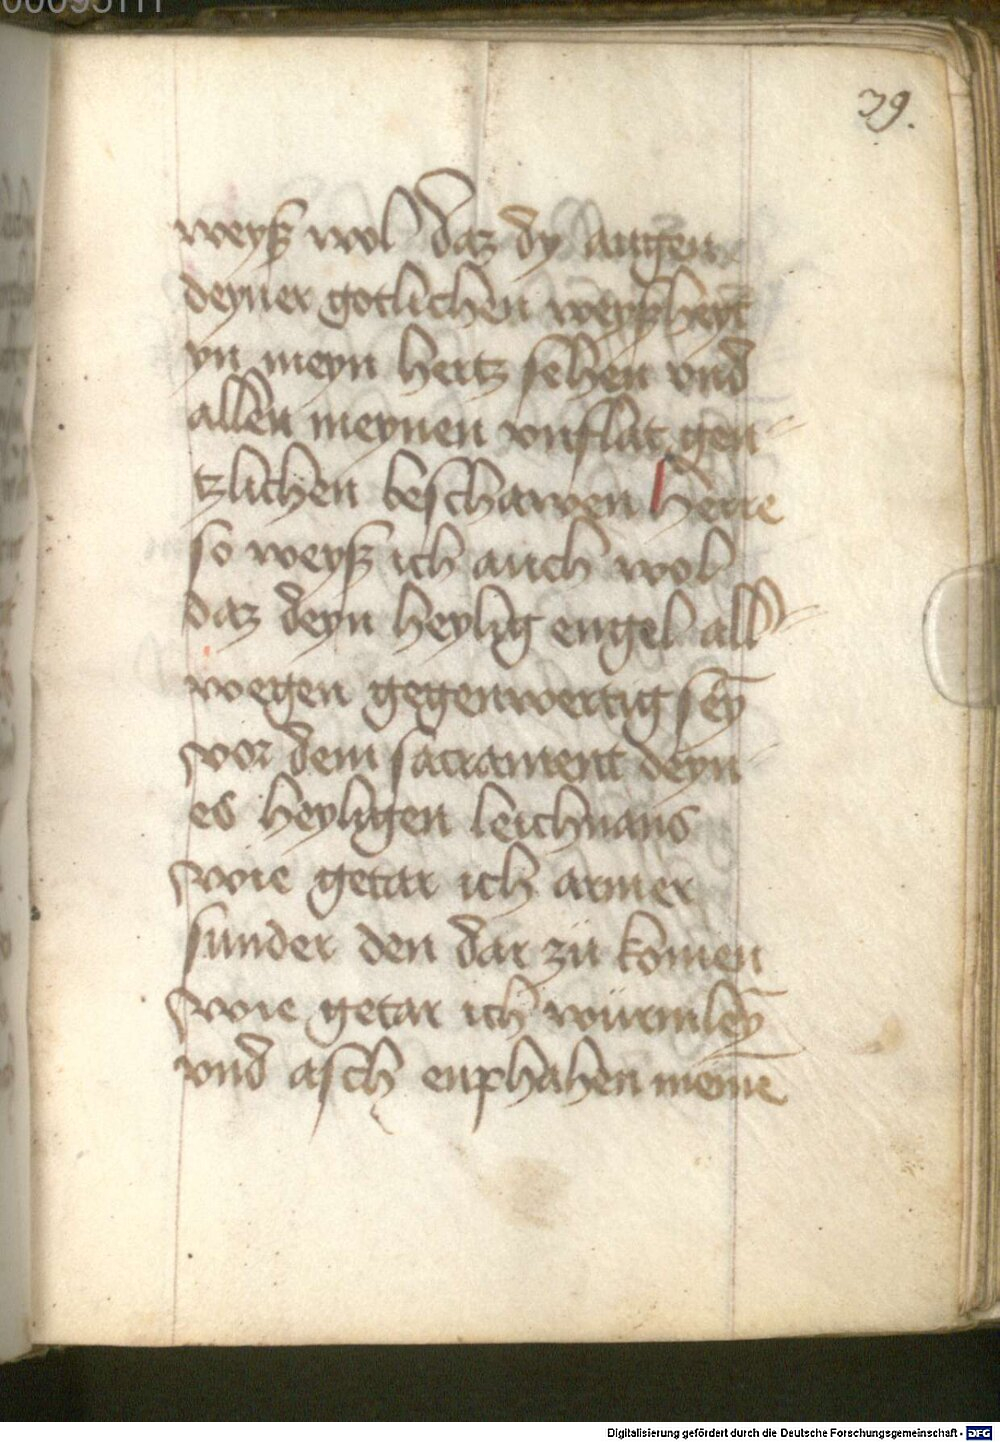 39.
weyß wol daz dy augen
deyner gotlichen weyßheyt
yn meyn hertz sehen vnd
allen meynen vnflat gen-
tzlichen beschawen herre
so weyß ich auch wol
daz deyn heylig engel all-
wegen gegenwertig sey̅
vor dem sacrament deyn-
es heyligen leichnams
wie getar ich armer
sunder den dar zü komen
wie getar ich würmley̅
vnd asch enphahen meine̅
Digitalisierung gefördert durch die Deutsche Forschungsgemeinschaft - DFG